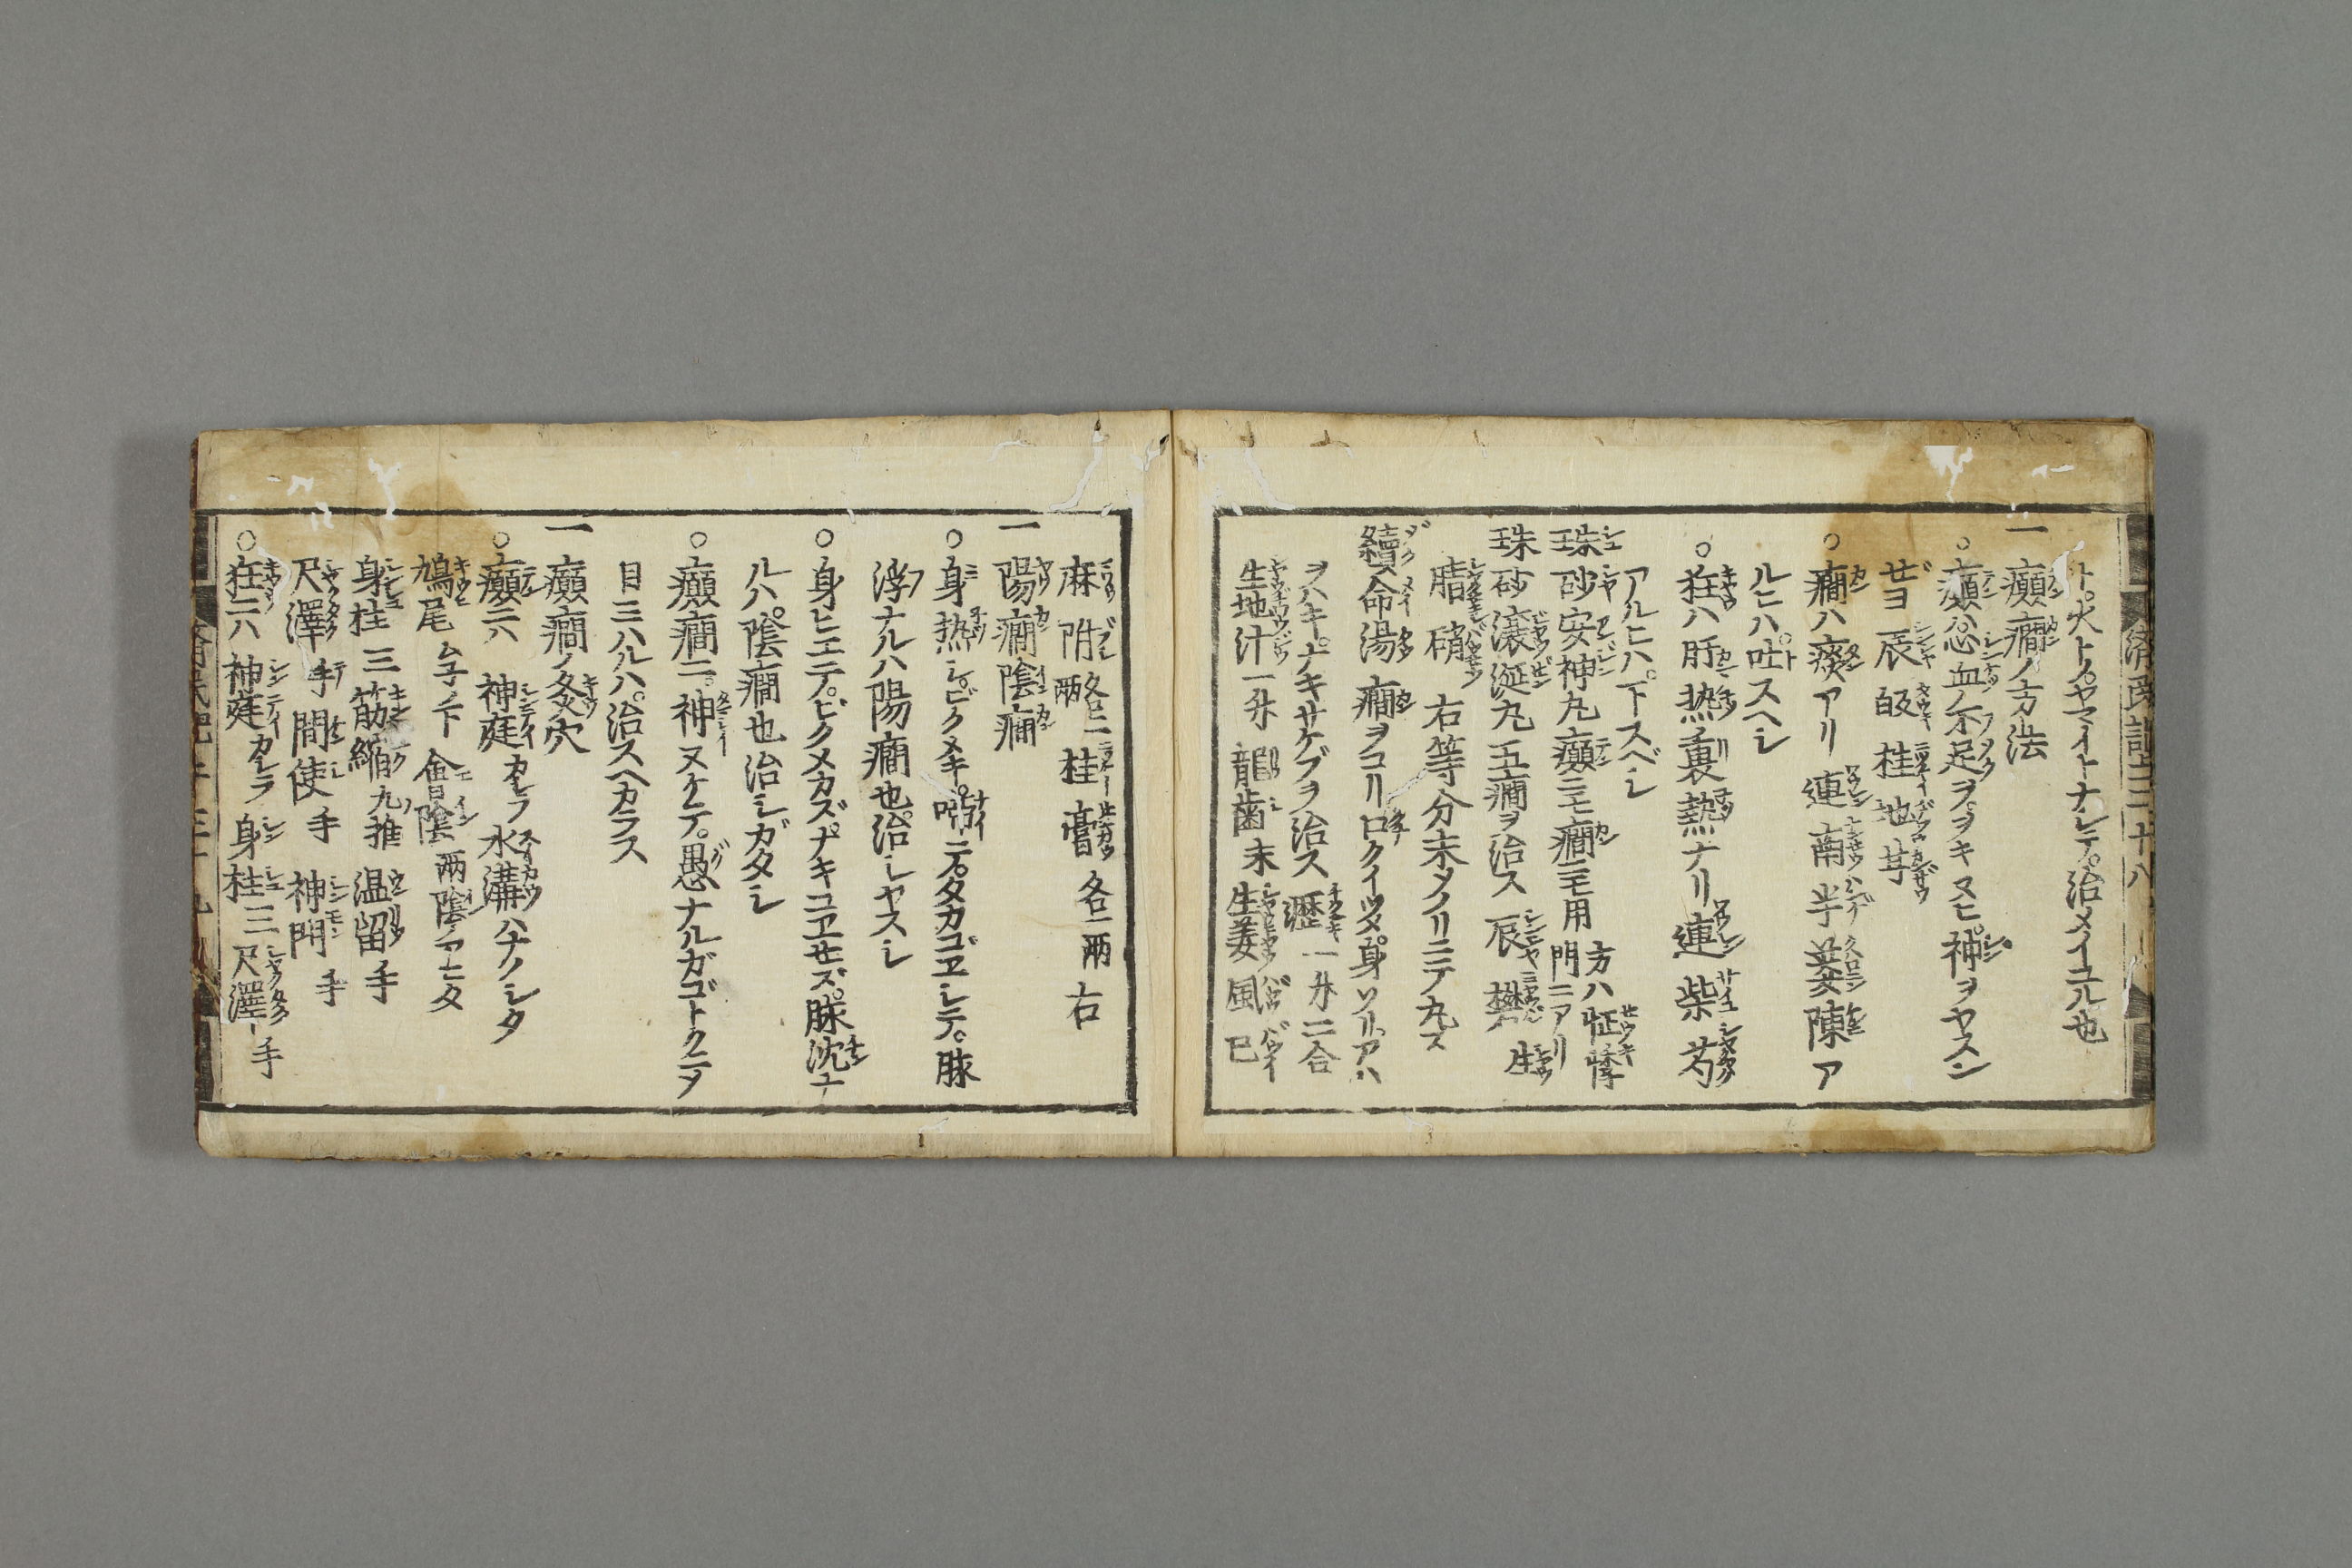 ト。火トノ。ヤマイトナレテ。治メイユル也
一癲癇ノ方法
○癲ハ心血ノ不足ヲ。ヲキヌヒ。神ヲヤスン
ゼヨ 辰 皈 桂 地 甘
○癇ハ痰アリ 連 南 半 姜 陳 ア
ルヒハ。吐スヘシ
○狂ハ肝熱裏熱ナリ 連 柴 芍
アルヒハ。下スベシ
珠砂安神丸癲ニモ癇ニモ用 方ハ怔悸
門ニアリ
珠砂滾涎丸五癇ヲ治ス 辰 礬 生
腊 硝 右等分末メノリニテ丸ス
續命湯 癇ヲコリ口クイツメ。身ソリ。アハ
ヲハキ。ナキサケブヲ治ス 瀝一升二合
生地汁一升 龍歯末 生姜 風 巳
麻 附各二両 桂 膏 各一両 右
一陽癇陰癇
○身熱シ。ビクメキ。啼ニ。タカゴヱシテ。脉
浮ナルハ陽癇也。治シヤスシ
○身ヒエテ。ビクメカズ。ナキコヱせズ。脉沈ナ
ルハ。陰癇也治シガタシ
○癲癇ニ。神ヌケテ。愚ナルガゴトクニヲ
目ミハルハ。治スヘカラス
一癲癇ノ灸穴
○癲ニハ 神庭カシラ 水溝ハナノシタ
鳩尾ムネノ下 會陰両陰ノアヒタ
身柱三 筋縮九ノ推 温留手
尺澤手 間使手 神門手
○狂ニハ 神庭カシラ 身柱三 尺澤手